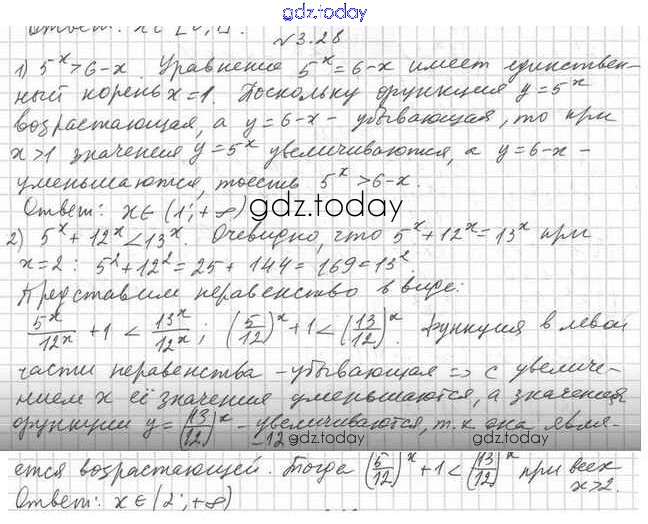 gdz.today
Ответ: x∈ [0;
№3.28
1) 5^x > 6-x. Уравнение 5^x = 6-x имеет единствен-
ный корень x=1. Поскольку функция y=5^x
возрастающая, а y=6-x - убывающая, то при
x>1 значения y=5^x увеличиваются, а y=6-x -
уменьшаются, тоесть 5^x > 6-x.
Ответ: x∈ (1; +∞)
gdz.today
2) 5^x + 12^x < 13^x. Очевидно, что 5^x + 12^x = 13^x при
x=2: 5^2 + 12^2 = 25 + 144 = 169 = 13^2.
Представим неравенство в виде:
5^x/12^x + 1 < 13^x/12^x; (5/12)^x + 1 < (13/12)^x. Функция в левой
части неравенства - убывающая => с увеличе-
нием x её значения уменьшаются, а значения
функции y = (13/12)^x - увеличиваются, т.к она явля-
-12 gdz.today gdz.today
ется возрастающей. Тогда (5/12)^x + 1 < (13/12)^x при всех
x>2.
Ответ: x∈ (2; +∞)